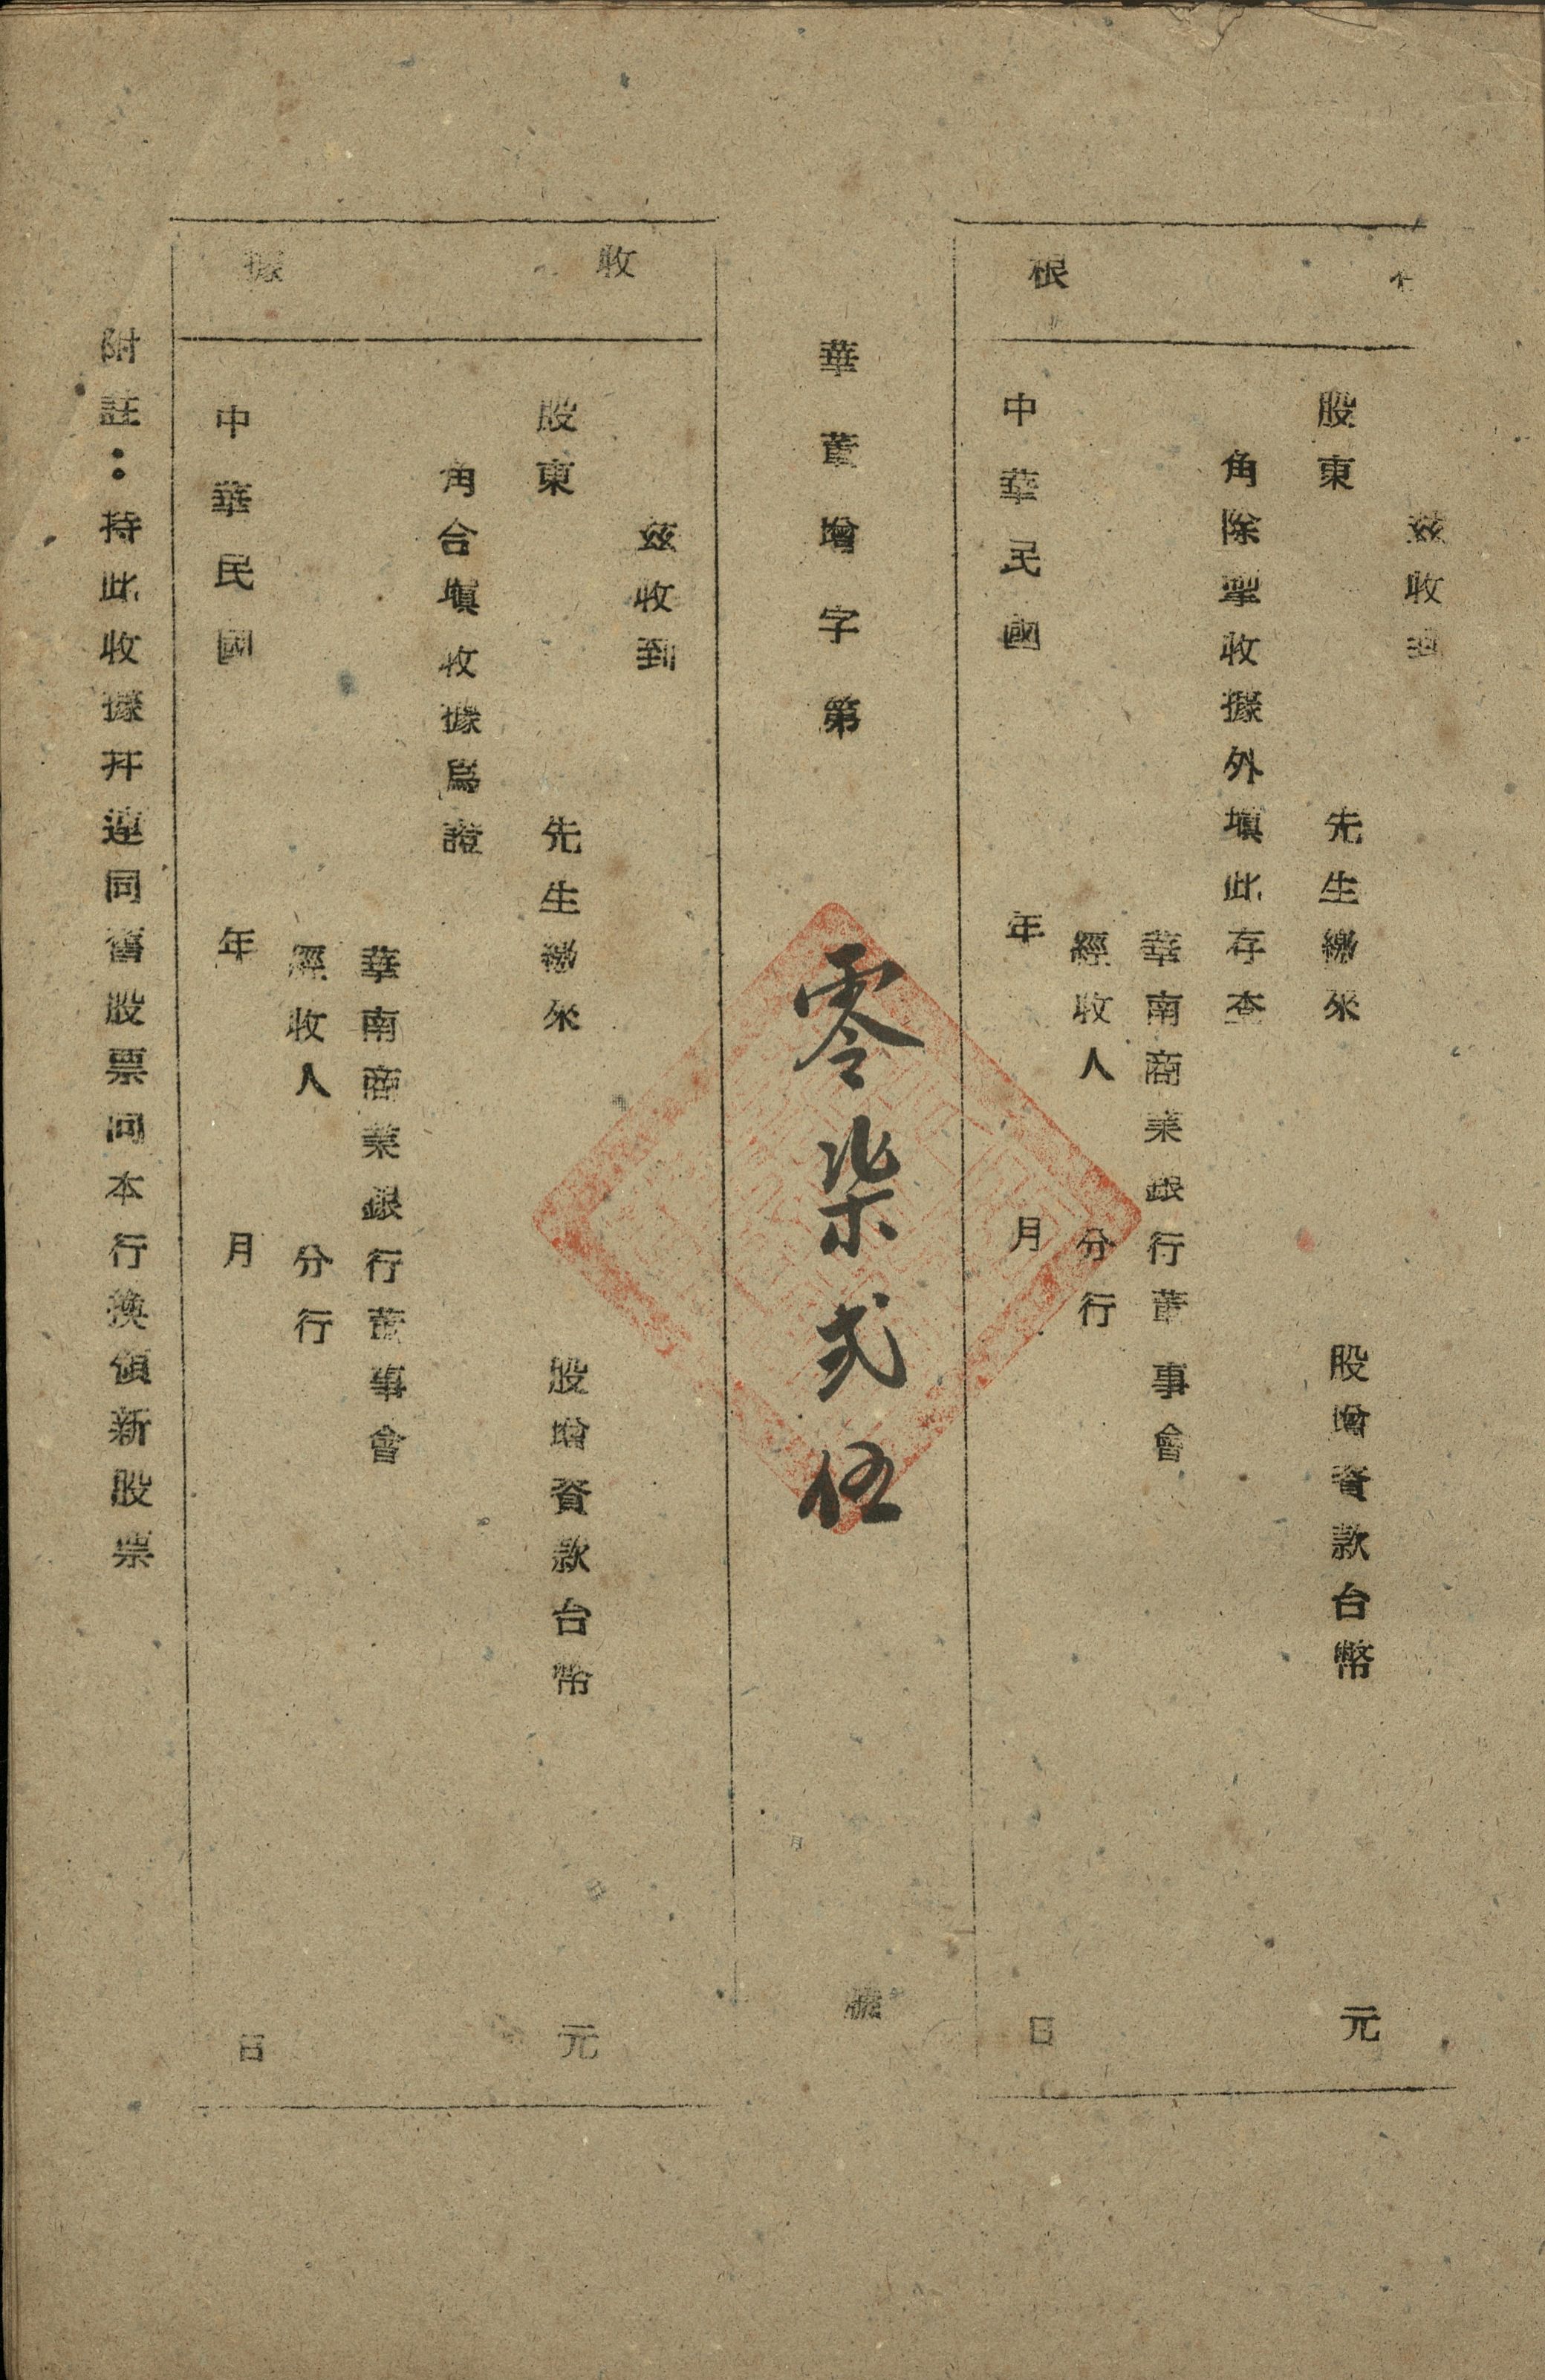 根
茲收到
股東 先生繳來 股增資款台幣 元
角除掣收據外塡此存查
華南商業銀行董事會
經收人 分行
中華民國 年 月 日
華董增字第 零柒弍伍 號
收據
茲收到
股東 先生繳來 股增資款台幣 元
角合塡收據爲證
華南商業銀行董事會
經收人 分行
中華民國 年 月 日
附註：持此收據幷連同舊股票向本行換領新股票